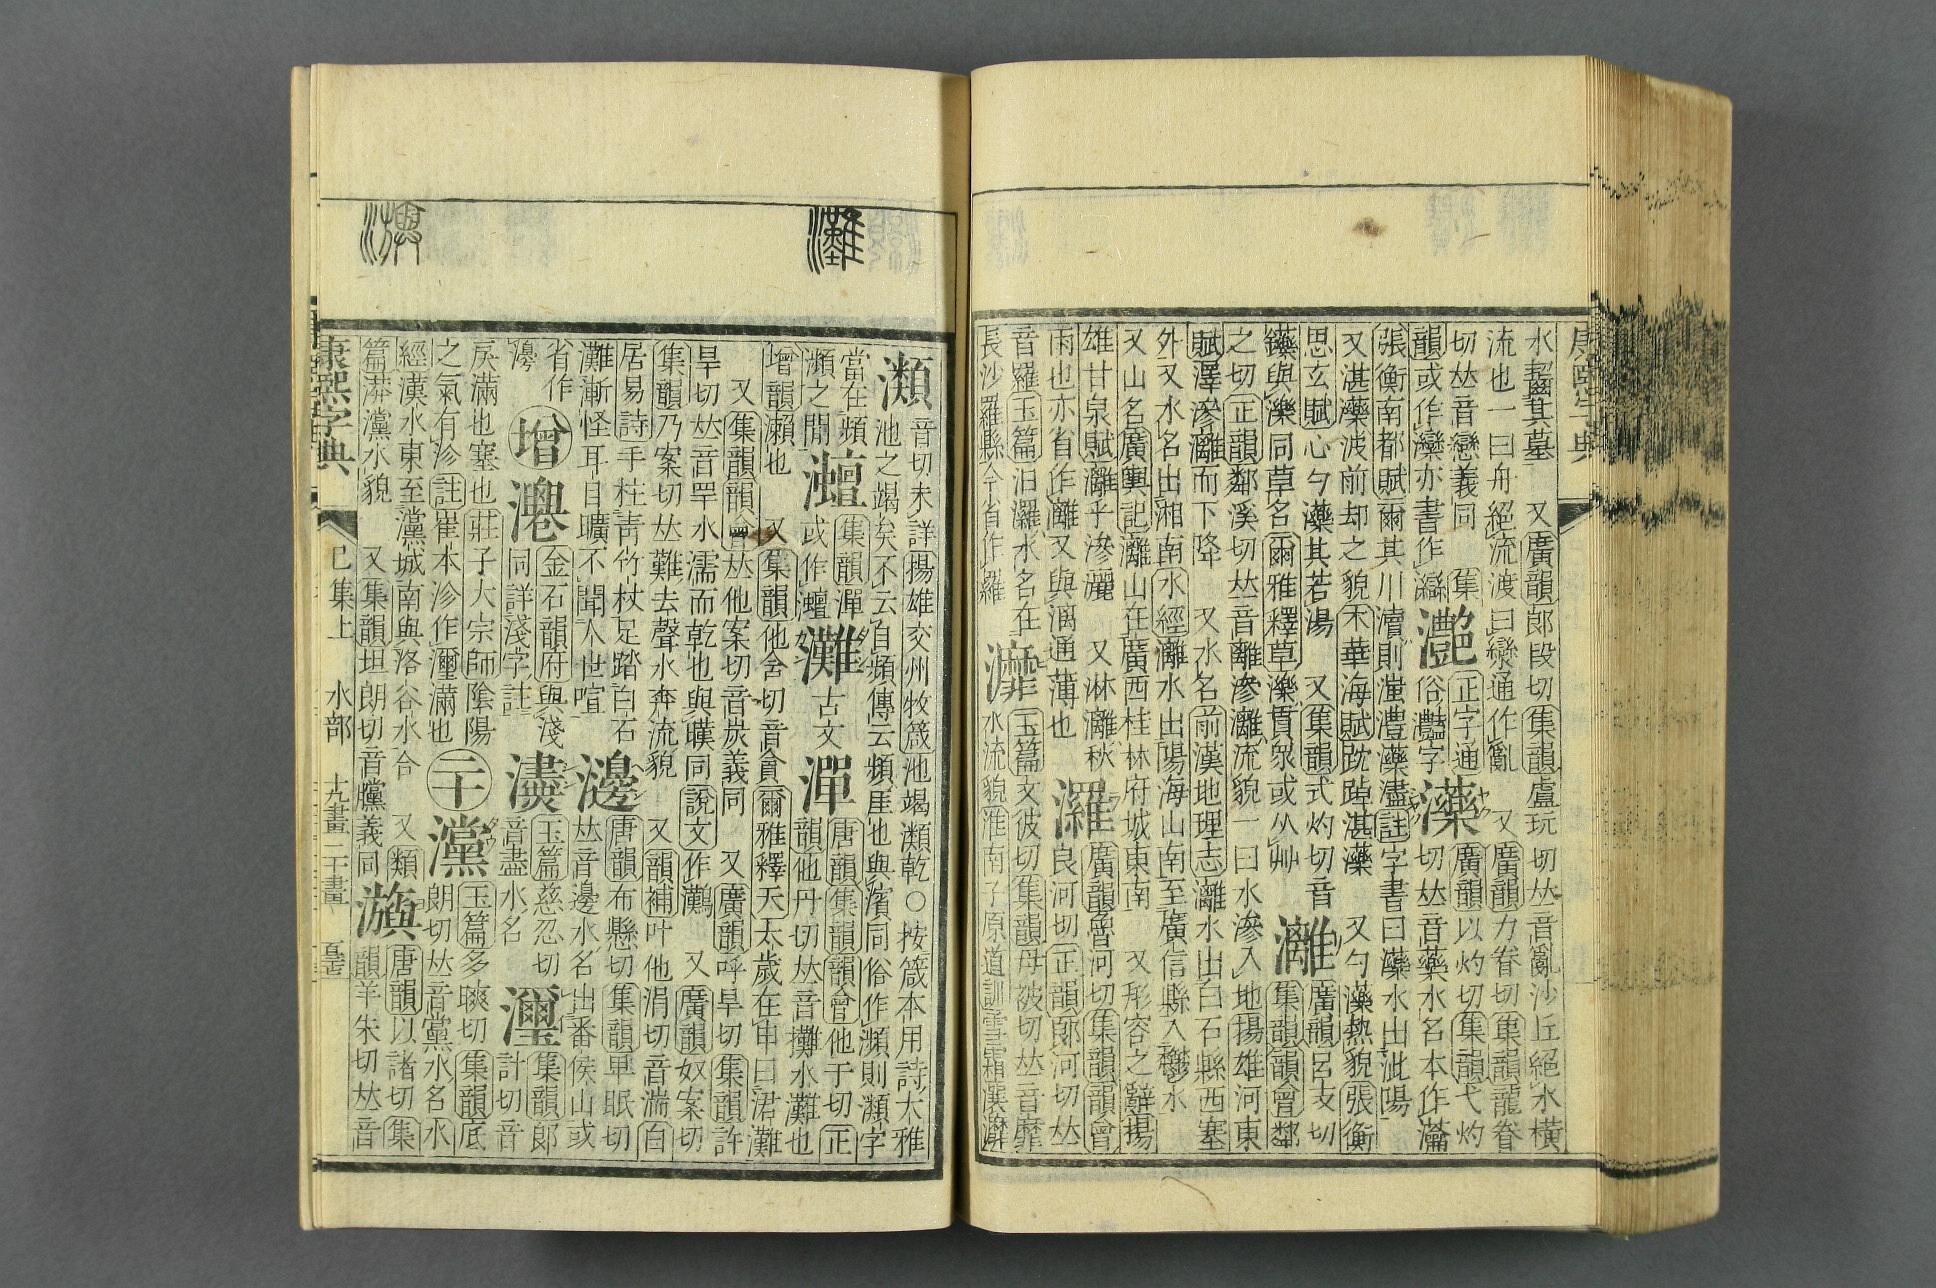 康熙字典
水齧其墓 又廣韻郎段切集韻盧玩切𠀤音亂沙丘絕水橫
流也一曰舟絕流渡曰灓通作亂 又廣韻力眷切集韻龍眷
切𠀤音戀義同 集灧正字通灤廣韻以灼切集韻弋灼
韻或作灓亦書作 俗灩字切𠀤音藥水名本作瀹
張衡南都賦爾其川瀆則滍澧灤濜註字書曰灤水出沘陽
又湛灤波前却之貌木華海賦眈踔湛灤 又勺灤熱貌張衡
思玄賦心勺灤其若湯 又集韻式灼切音灕廣韻呂支切
鑠與濼同草名爾雅釋草濼貫衆或从艸 集韻韻會鄰
之切正韻鄰溪切𠀤音離滲灕流貌一曰水滲入地揚雄河東
賦澤滲灕而下降 又水名前漢地理志灕水出白石縣西塞
外又水名出湘南水經灕水出陽海山南至廣信縣入鬱水
又山名廣輿記灕山在廣西桂林府城東南 又形容之辭揚
雄甘泉賦灕乎滲灑 又淋灕秋灑廣韻魯何切集韻韻會
雨也亦省作離又與漓通薄也 良何切正韻郎何切𠀤
音羅玉篇汨羅水名在灖玉篇文彼切集韻母被切𠀤音靡
長沙羅縣今省作羅 水流貌淮南子原道訓雪霜瀼灖
瀕音切未詳揚雄交州牧箴池竭瀕乾○按箴本用詩大雅
池之竭矣不云自頻傳云頻厓也與濱同俗作瀕則瀕字
當在頻 集韻潬灘古文潬唐韻集韻韻會他干切正
瀕之閒 或作 韻他丹切𠀤音攤水灘也
增韻瀨也 又集韻他含切音貪爾雅釋天太歲在申曰涒灘
又集韻韻會𠀤他案切音炭義同 又廣韻呼旱切集韻許
旱切𠀤音罕水濡而乾也與暵同說文作灘 又廣韻奴案切
集韻乃案切𠀤難去聲水奔流貌 又韻補叶他涓切音湍白
居易詩手拄靑竹杖足踏白石 邊唐韻布懸切集韻𤰞眠切
灘漸怪耳目曠不聞人世喧 𠀤音邊水名出番侯山或
省作 增 金石韻府與淺 玉篇慈忍切 瀰集韻郎
邊 同詳淺字註 音盡水名 計切音
戾滿也塞也莊子大宗師陰陽 二十 灙玉篇多朖切集韻底
之氣有沴註崔本沴作瀰滿也 朗切𠀤音黨水名水
經漢水東至灙城南與洛谷水合 又類 唐韻以諸切集
篇漭灙水貌 又集韻坦朗切音曭義同 韻羊朱切𠀤音
康熙字典 巳集上 水部 九畫 二十畫